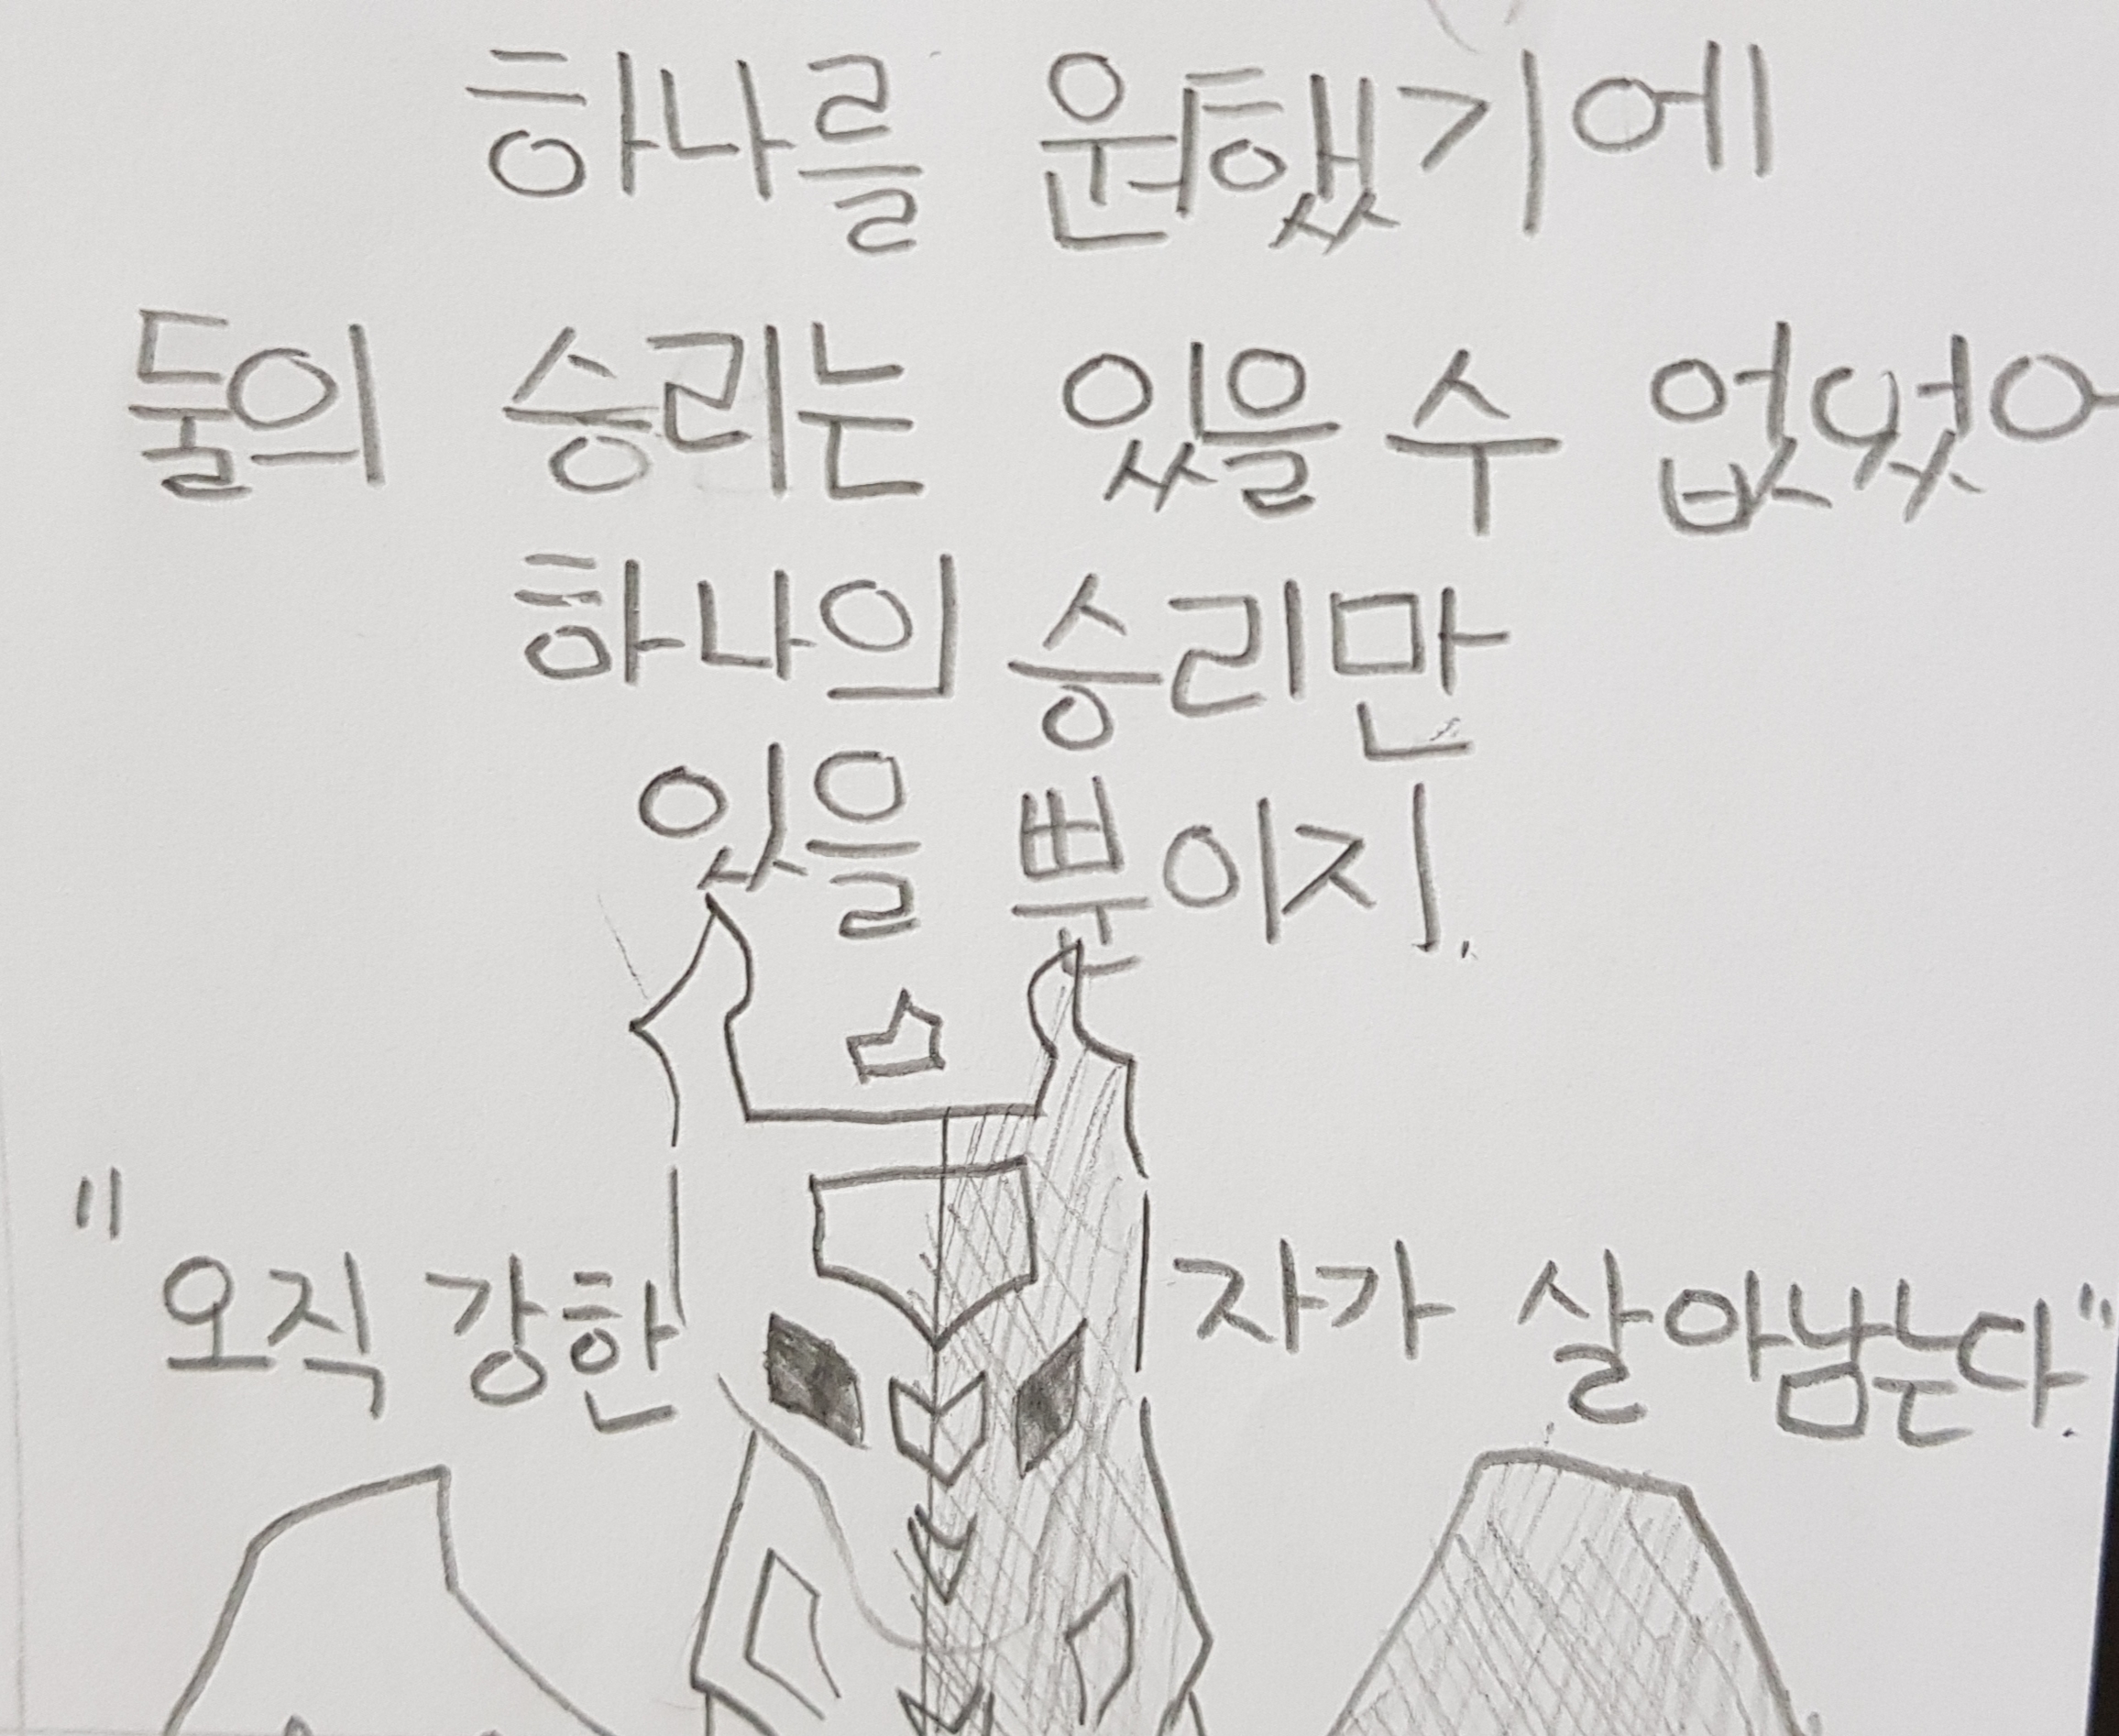 하나를 원했기에
둘의 승리는 있을 수 없었어
하나의 승리만
있을 뿐이지.
"오직 강한 자가 살아남는다."